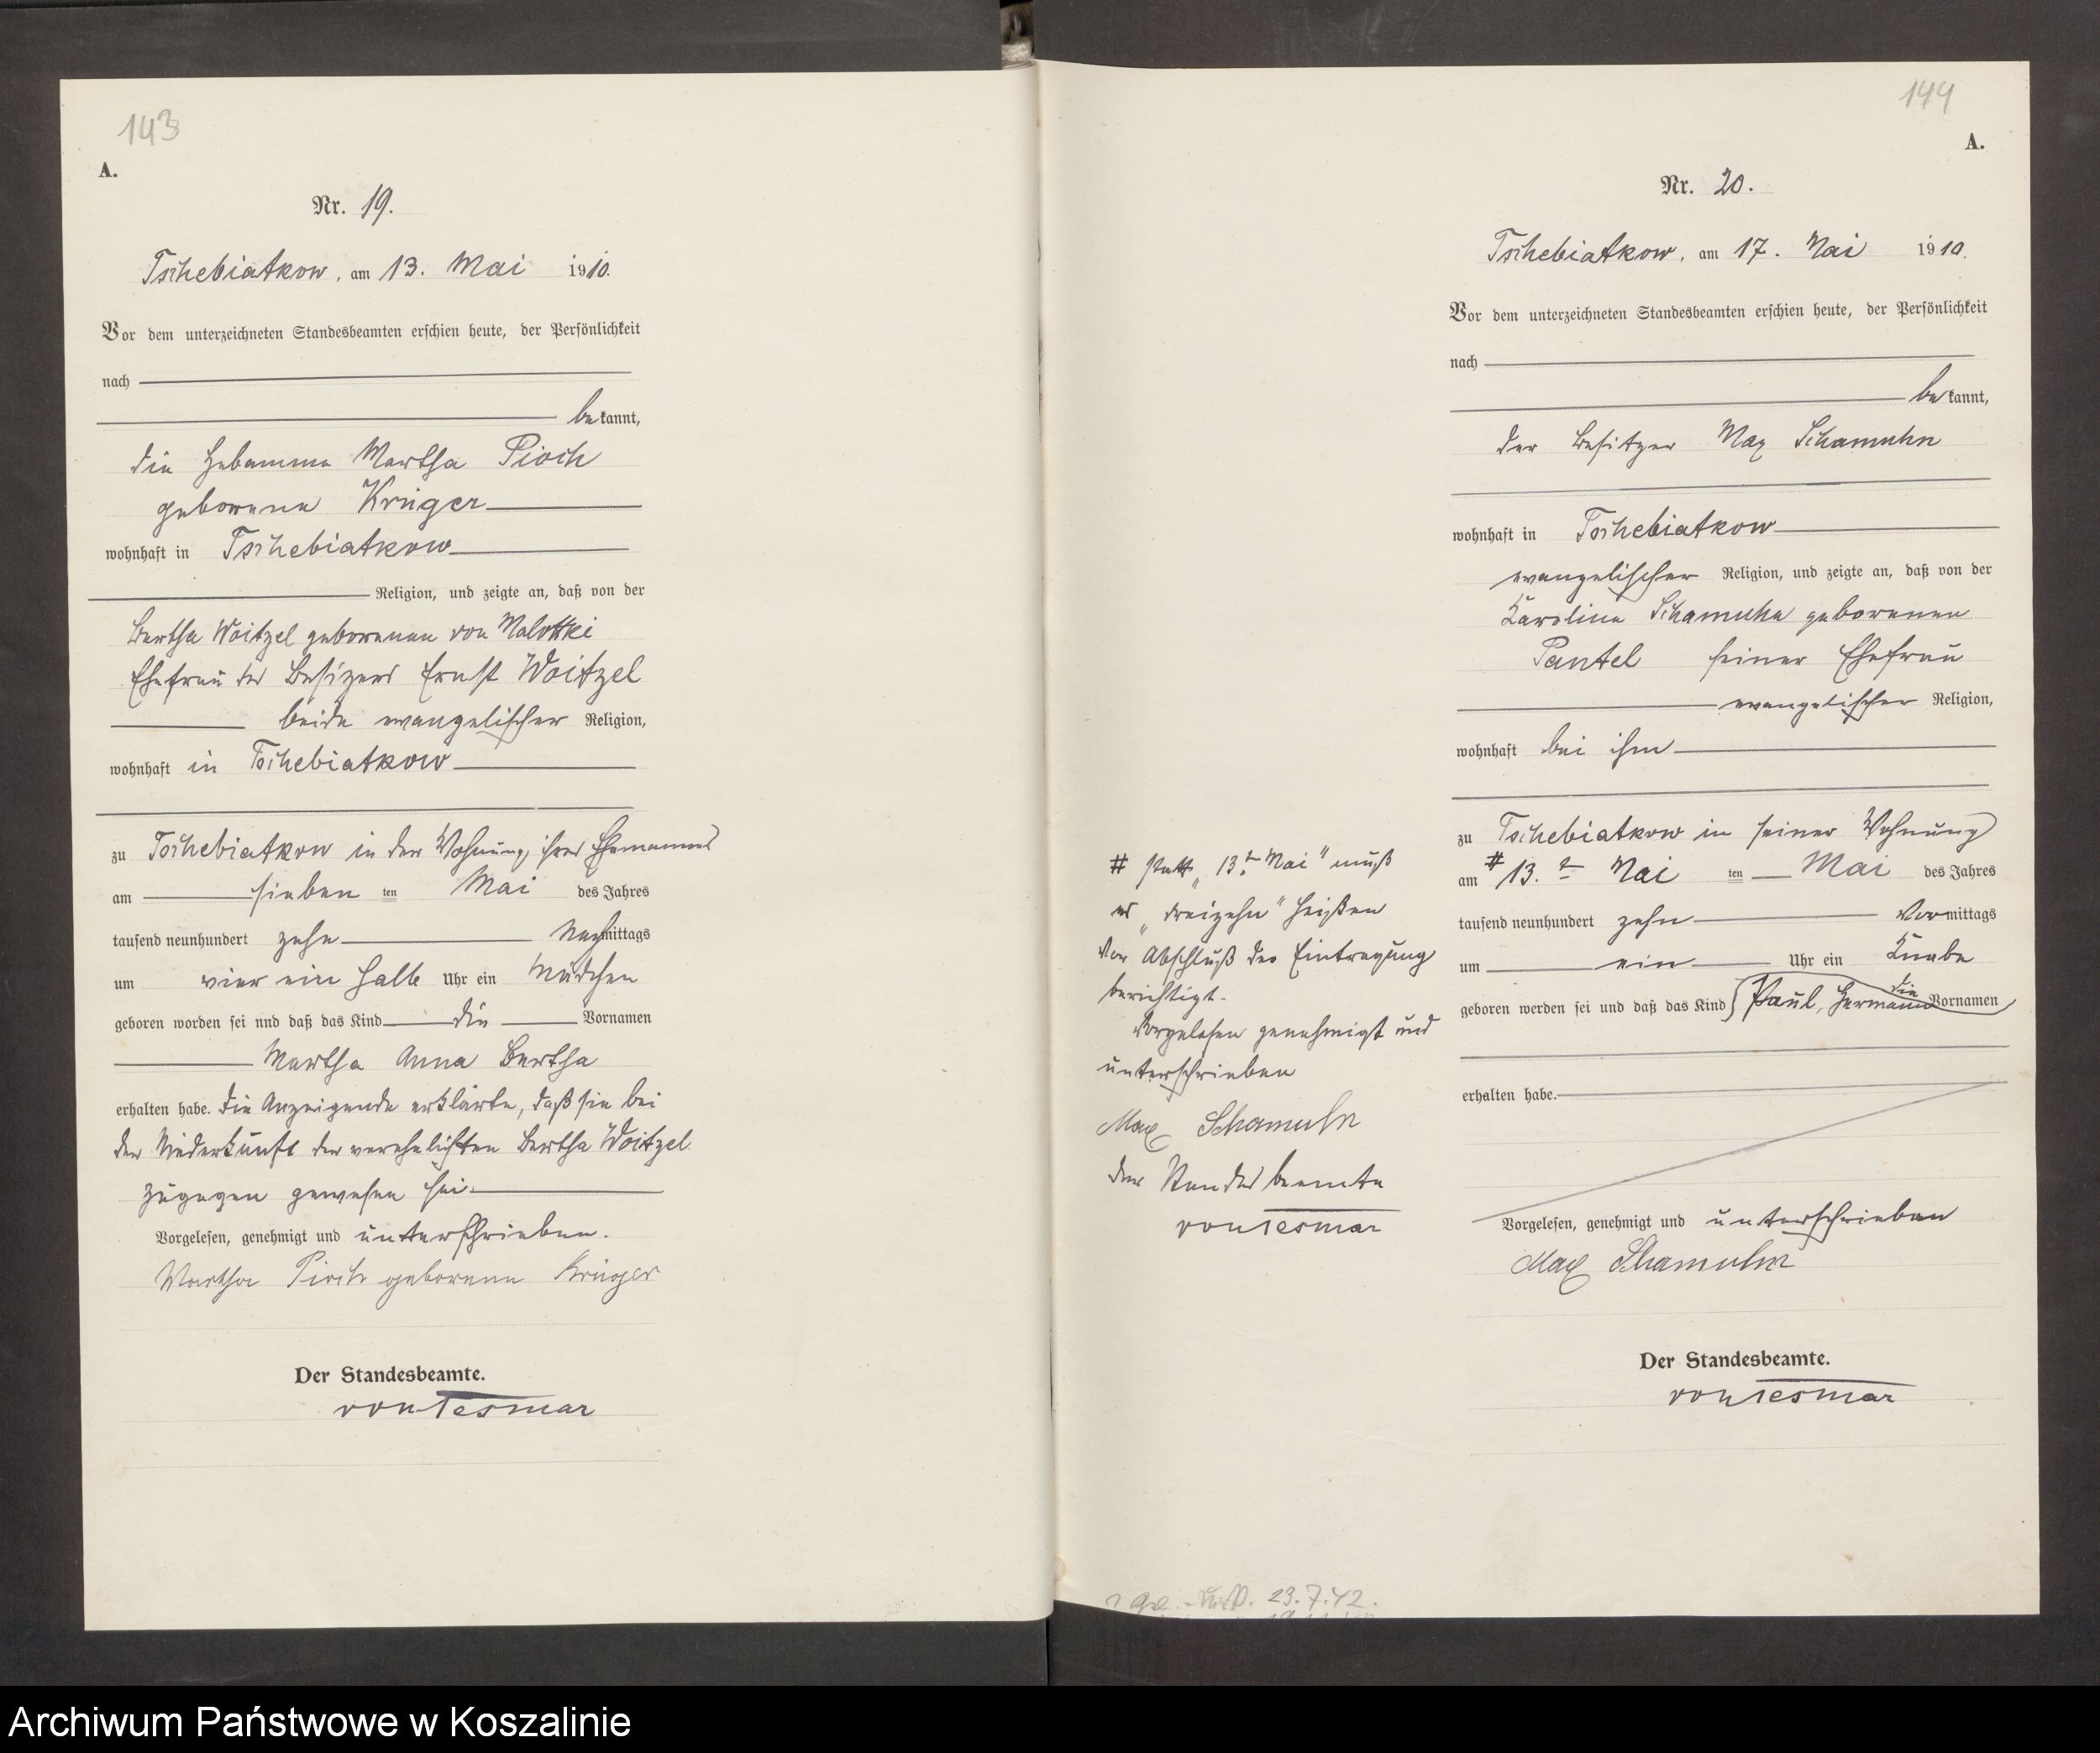 143
A.
Nr. 19.
Tschebiatkow, am 13. Mai 1910.
Vor dem unterzeichneten Standesbeamten erschien heute, der Persönlichkeit
nach
bekannt,
die Hebamme Martha Pioch
geborene Krüger
wohnhaft in Tschebiatkow
Religion, und zeigte an, daß von der
Bertha Woitzel geborenen von Malottki
Ehefrau des Besizers Ernst Woitzel
beide evangelischer Religion,
wohnhaft in Tschebiatkow
zu Tschebiatkow in der Wohnung ihres Ehemannes
am sieben ten Mai des Jahres
tausend neunhundert zehn Nachmittags
um vier ein halb Uhr ein Mädchen
geboren worden sei und daß das Kind die Vornamen
Martha Anna Bertha
erhalten habe. Die Anzeigende erklärte, daß sie bei
der Niederkunft der verehelichten Bertha Woitzel
zugegen gewesen sei.
Vorgelesen, genehmigt und unterschrieben.
Martha Pioch geborene Krüger
Der Standesbeamte.
von Tesmar
144
A.
Nr. 20.
Tschebiatkow, am 17. Mai 1910.
Vor dem unterzeichneten Standesbeamten erschien heute, der Persönlichkeit
nach
bekannt,
der Besitzer Max Schamuhn
wohnhaft in Tschebiatkow
evangelischer Religion, und zeigte an, daß von der
Karoline Schamuhn geborenen
Pantel seiner Ehefrau
evangelischer Religion,
wohnhaft bei ihm
zu Tschebiatkow in seiner Wohnung
am # 13.t Mai ten Mai des Jahres
tausend neunhundert zehn Vormittags
um ein Uhr ein Knabe
geboren worden sei und daß das Kind Paul, Hermann die Vornamen
erhalten habe.
Vorgelesen, genehmigt und unterschrieben
Max Schamuhn
Der Standesbeamte.
von Tesmar
# statt „13.t Mai" muß
es „dreizehn" heißen
vor Abschluß der Eintragung
berichtigt.
Vorgelesen genehmigt und
unterschrieben
Max Schamuhn
der Standesbeamte
von Tesmar
23.7.42.
Archiwum Państwowe w Koszalinie